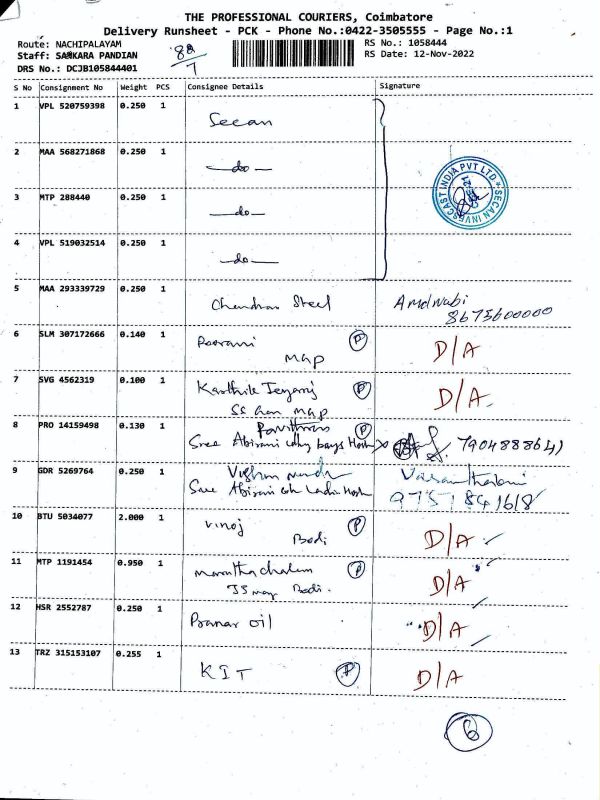 THE PROFESSIONAL COURIERS, Coimbatore
Delivery Runsheet - PCK - Phone No.:0422-3505555 - Page No.:1
Route: NACHIPALAYAM
RS No.: 1058444
Staff: SANKARA PANDIAN
RS Date: 12-Nov-2022
DRS No.: DCJB105844401
S No Consignment No Weight PCS Consignee Details Signature
1 VPL 520759398 0.250 1 Secan
2 MAA 568271868 0.250 1 —do—
SECAN INVESCAST INDIA PVT LTD
3 MTP 288440 0.250 1 —do—
4 VPL 519032514 0.250 1 —do—
5 MAA 293339729 0.250 1 Chandran Steel
8675600000
6 SLM 307172666 0.140 1 Poorani P D/A
MAP
7 SVG 4562319 0.100 1 P D/A
map
8 PRO 14159498 0.130 1 P
Sree Abirami boys 7904888641
9 GDR 5269764 0.250 1
Abirami
9751841618
10 BTU 5034077 2.000 1 Vinoj P
Bodi D/A
11 MTP 1191454 0.950 1 P D/A
Bodi.
12 HSR 2552787 0.250 1 Pranav oil D/A
13 TRZ 315153107 0.255 1 KIT P D/A
6